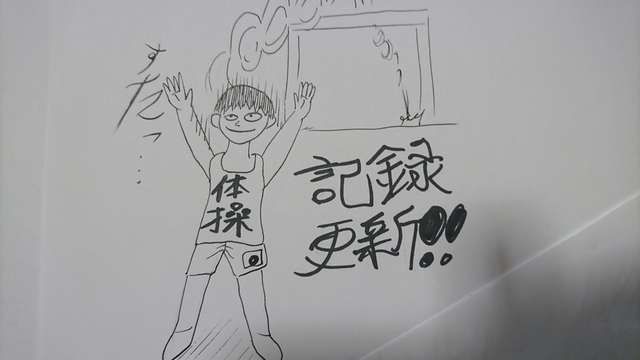 すたっ…
体
操
記録
更新!!